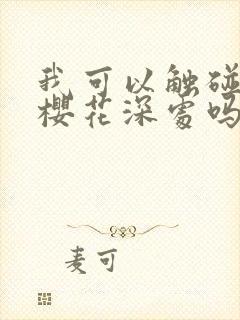 我可以触碰
樱花深处吗
麦可